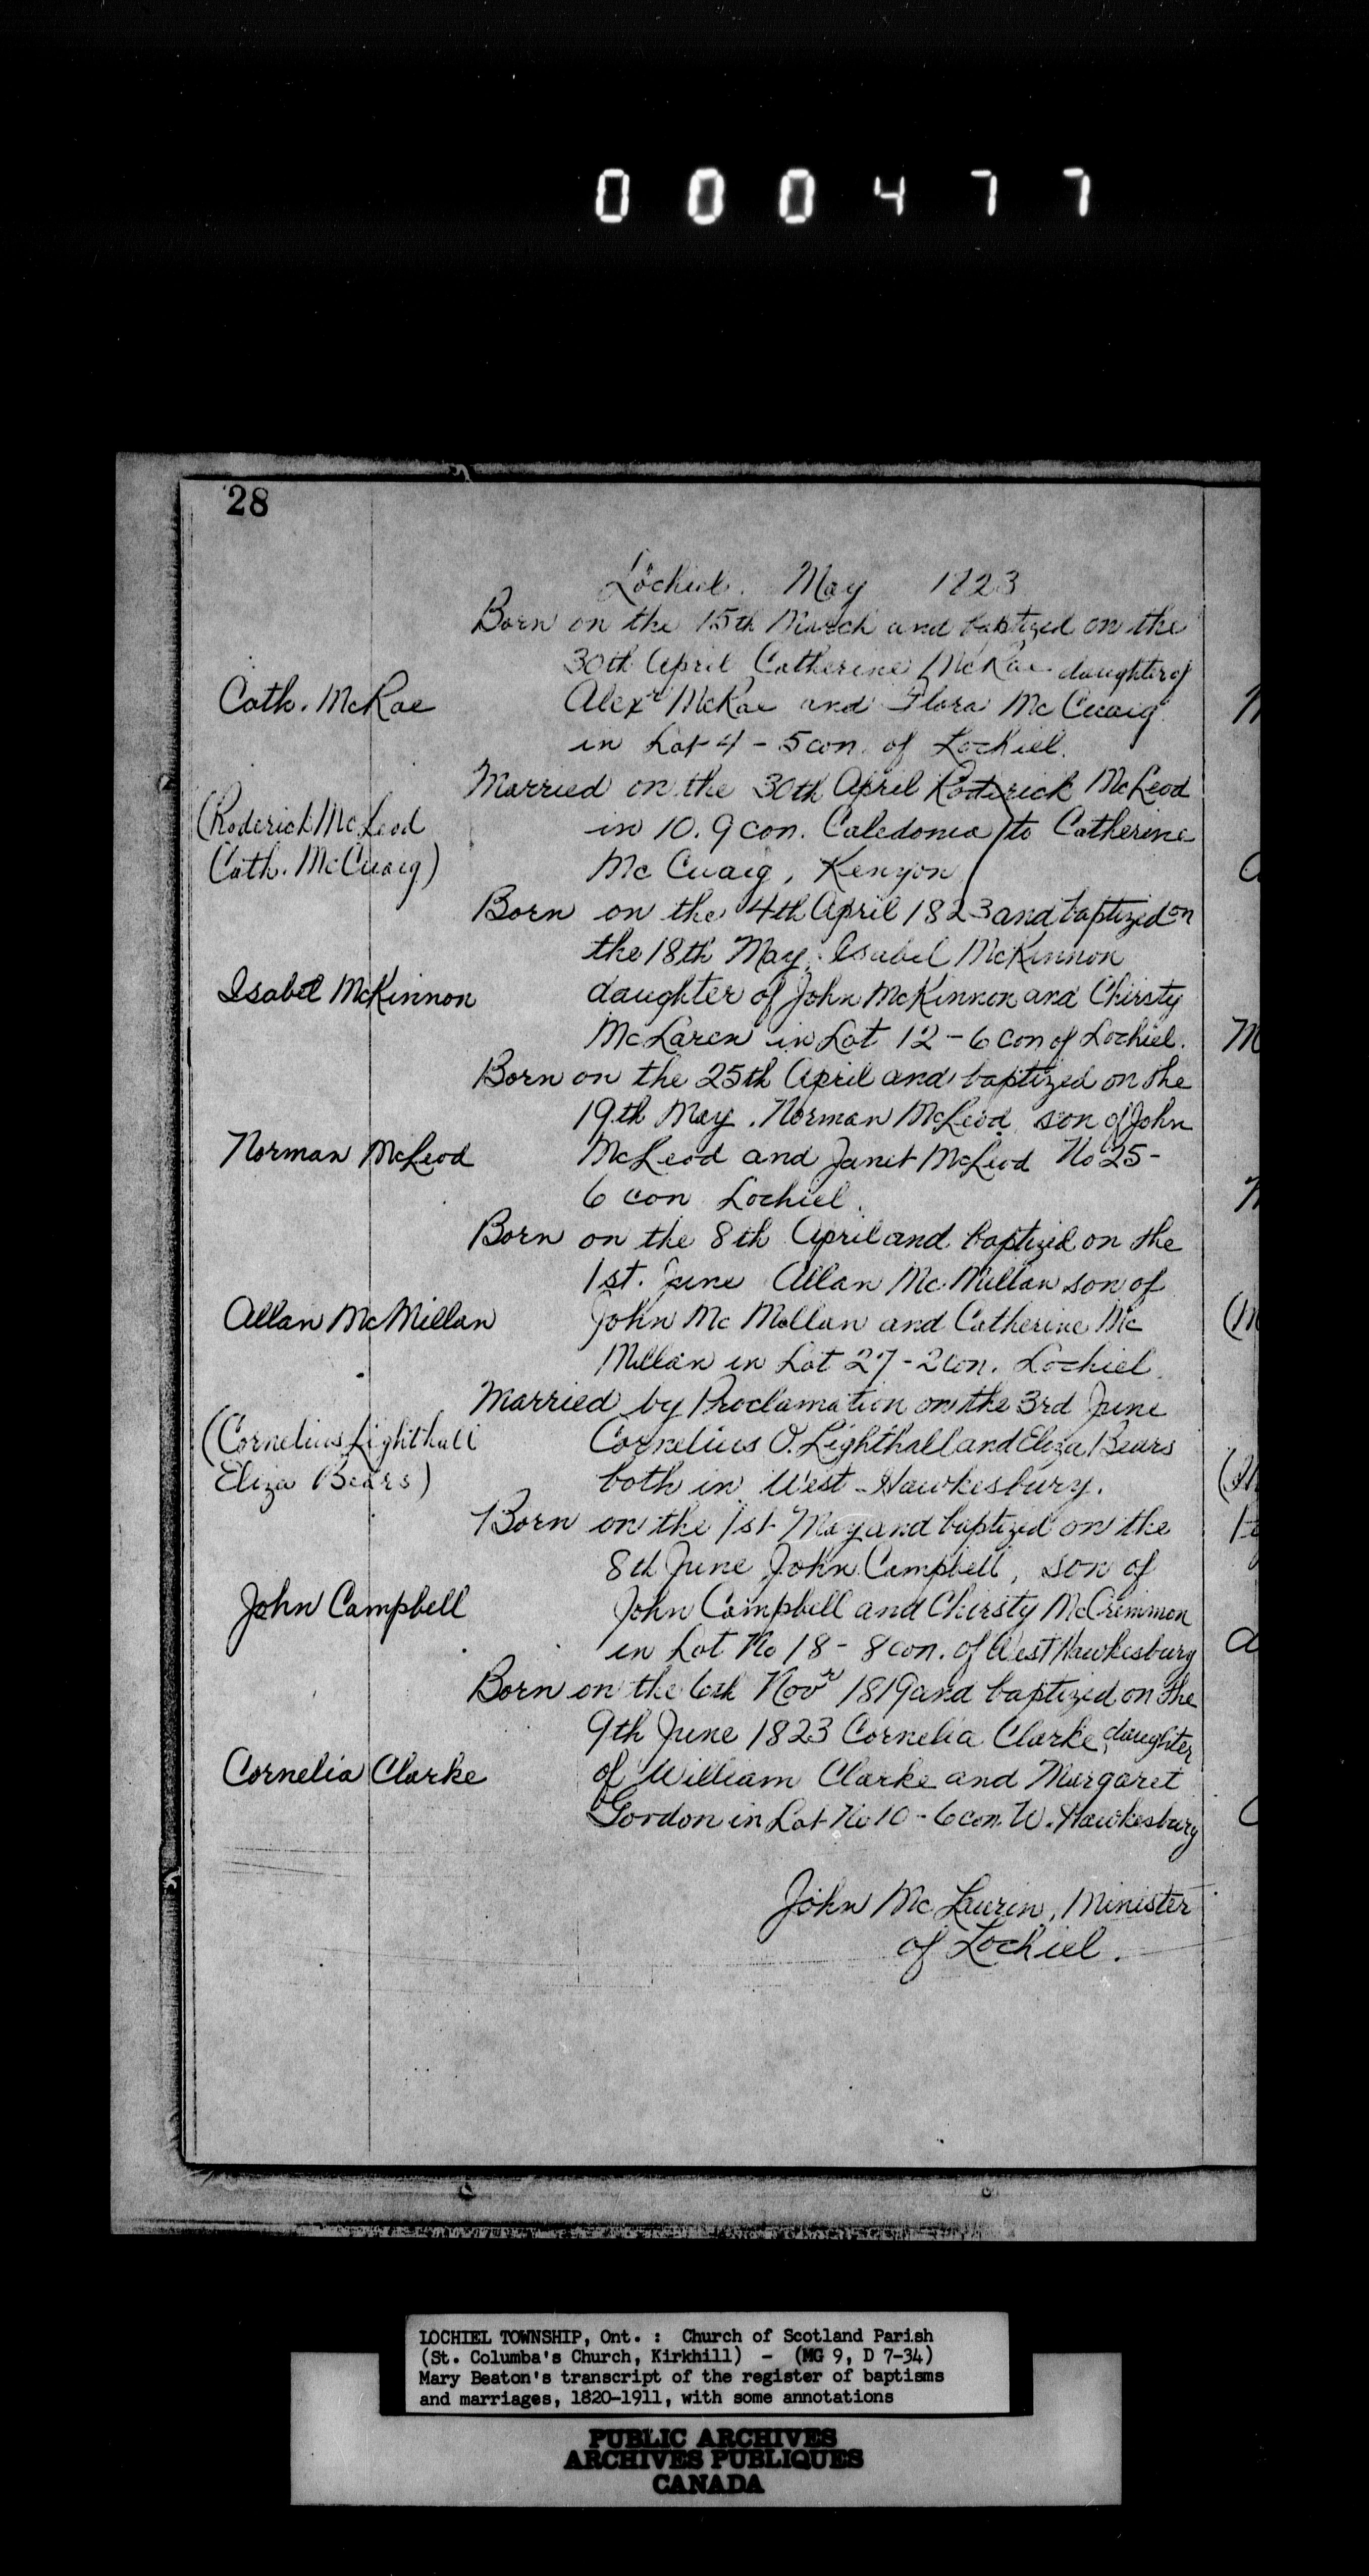 000477
28
Lochiel. May 1823
Born on the 15th March and baptized on the
30th April Catherine McRae daughter of
Cath. McRae Alexr McRae and Flora McCuaig
in Lot 4 - 5 con. of Lochiel.
Married on the 30th April Roderick McLeod
(Roderick McLeod in 10. 9 con. Caledonia to Catherine
Cath. McCuaig) McCuaig, Kenyon
Born on the 4th April 1823 and baptized on
the 18th May, Isabel McKinnon
Isabel McKinnon daughter of John McKinnon and Chirsty
McLaren in Lot 12 - 6 con of Lochiel.
Born on the 25th April and baptized on the
19th May. Norman McLeod son of John
Norman McLeod McLeod and Janet McLeod No 25 -
6 con Lochiel.
Born on the 8th April and baptized on the
1st. June Allan McMillan son of
Allan McMillan John McMillan and Catherine Mc
Millan in Lot 27 - 2 con. Lochiel.
Married by Proclamation on the 3rd June
(Cornelius Lighthall Cornelius O. Lighthall and Eliza Bears
Eliza Bears) both in West - Hawkesbury.
Born on the 1st May and baptized on the
8th June John Campbell, son of
John Campbell John Campbell and Chirsty McCrimmon
in Lot No 18 - 8 con. of West Hawkesbury
Born on the 6th Novr 1819 and baptized on the
9th June 1823 Cornelia Clarke, daughter
Cornelia Clarke of William Clarke and Margaret
Gordon in Lot No 10 - 6 con. W. Hawkesbury
John McLaurin, Minister
of Lochiel.
LOCHIEL TOWNSHIP, Ont. : Church of Scotland Parish
(St. Columba's Church, Kirkhill) - (MG 9, D 7-34)
Mary Beaton's transcript of the register of baptisms
and marriages, 1820-1911, with some annotations
PUBLIC ARCHIVES
ARCHIVES PUBLIQUES
CANADA